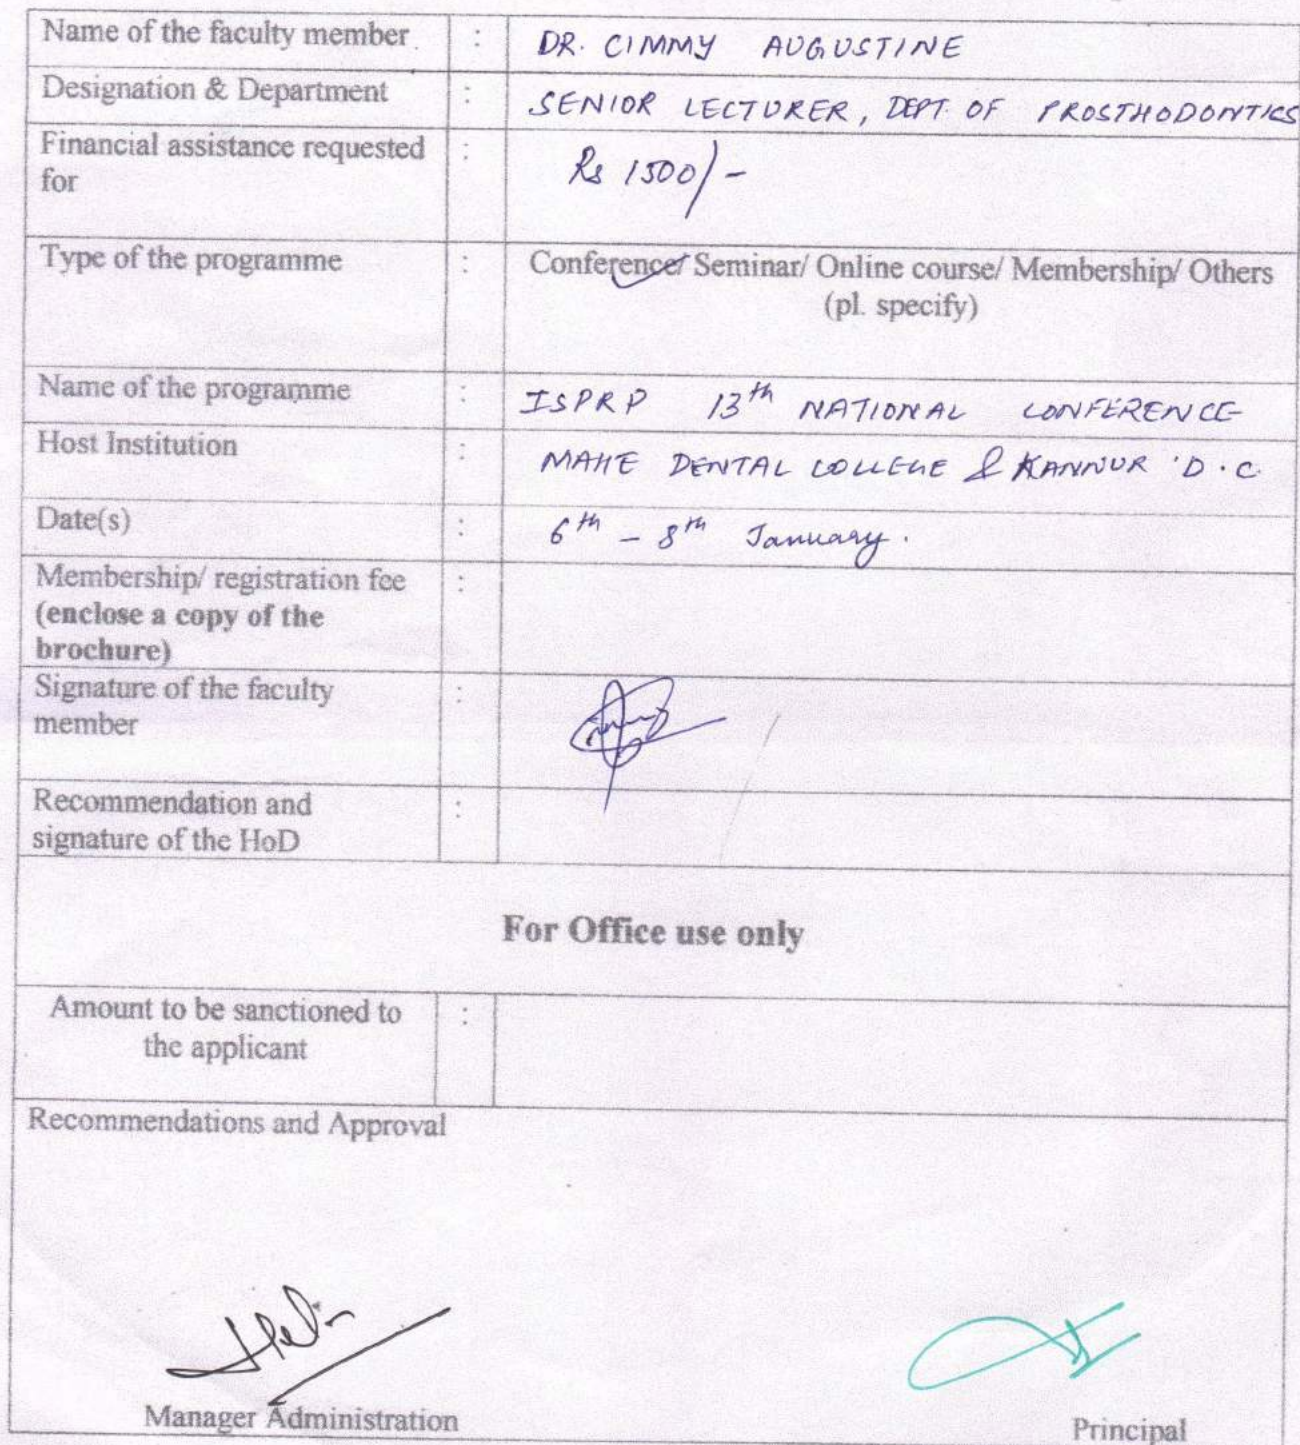 Name of the faculty member : DR. CIMMY AUGUSTINE
Designation & Department : SENIOR LECTURER, DEPT. OF PROSTHODONTICS
Financial assistance requested : Rs 1500/-
for
Type of the programme : Conference/ Seminar/ Online course/ Membership/ Others
(pl. specify)
Name of the programme : ISPRP 13th NATIONAL CONFERENCE
Host Institution : MAHE DENTAL COLLEGE & KANNUR D.C.
Date(s) : 6th - 8th January.
Membership/ registration fee :
(enclose a copy of the
brochure)
Signature of the faculty :
member
Recommendation and :
signature of the HoD
For Office use only
Amount to be sanctioned to :
the applicant
Recommendations and Approval
Manager Administration
Principal